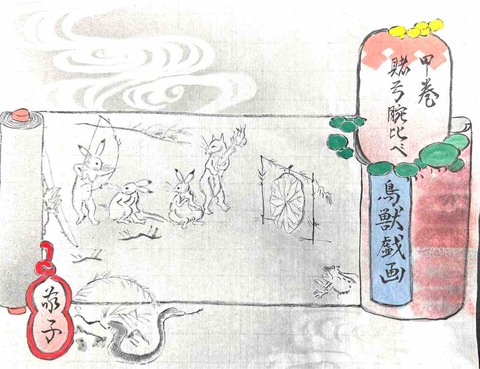 甲巻
賭弓腕比べ
鳥獣戯画
敬子